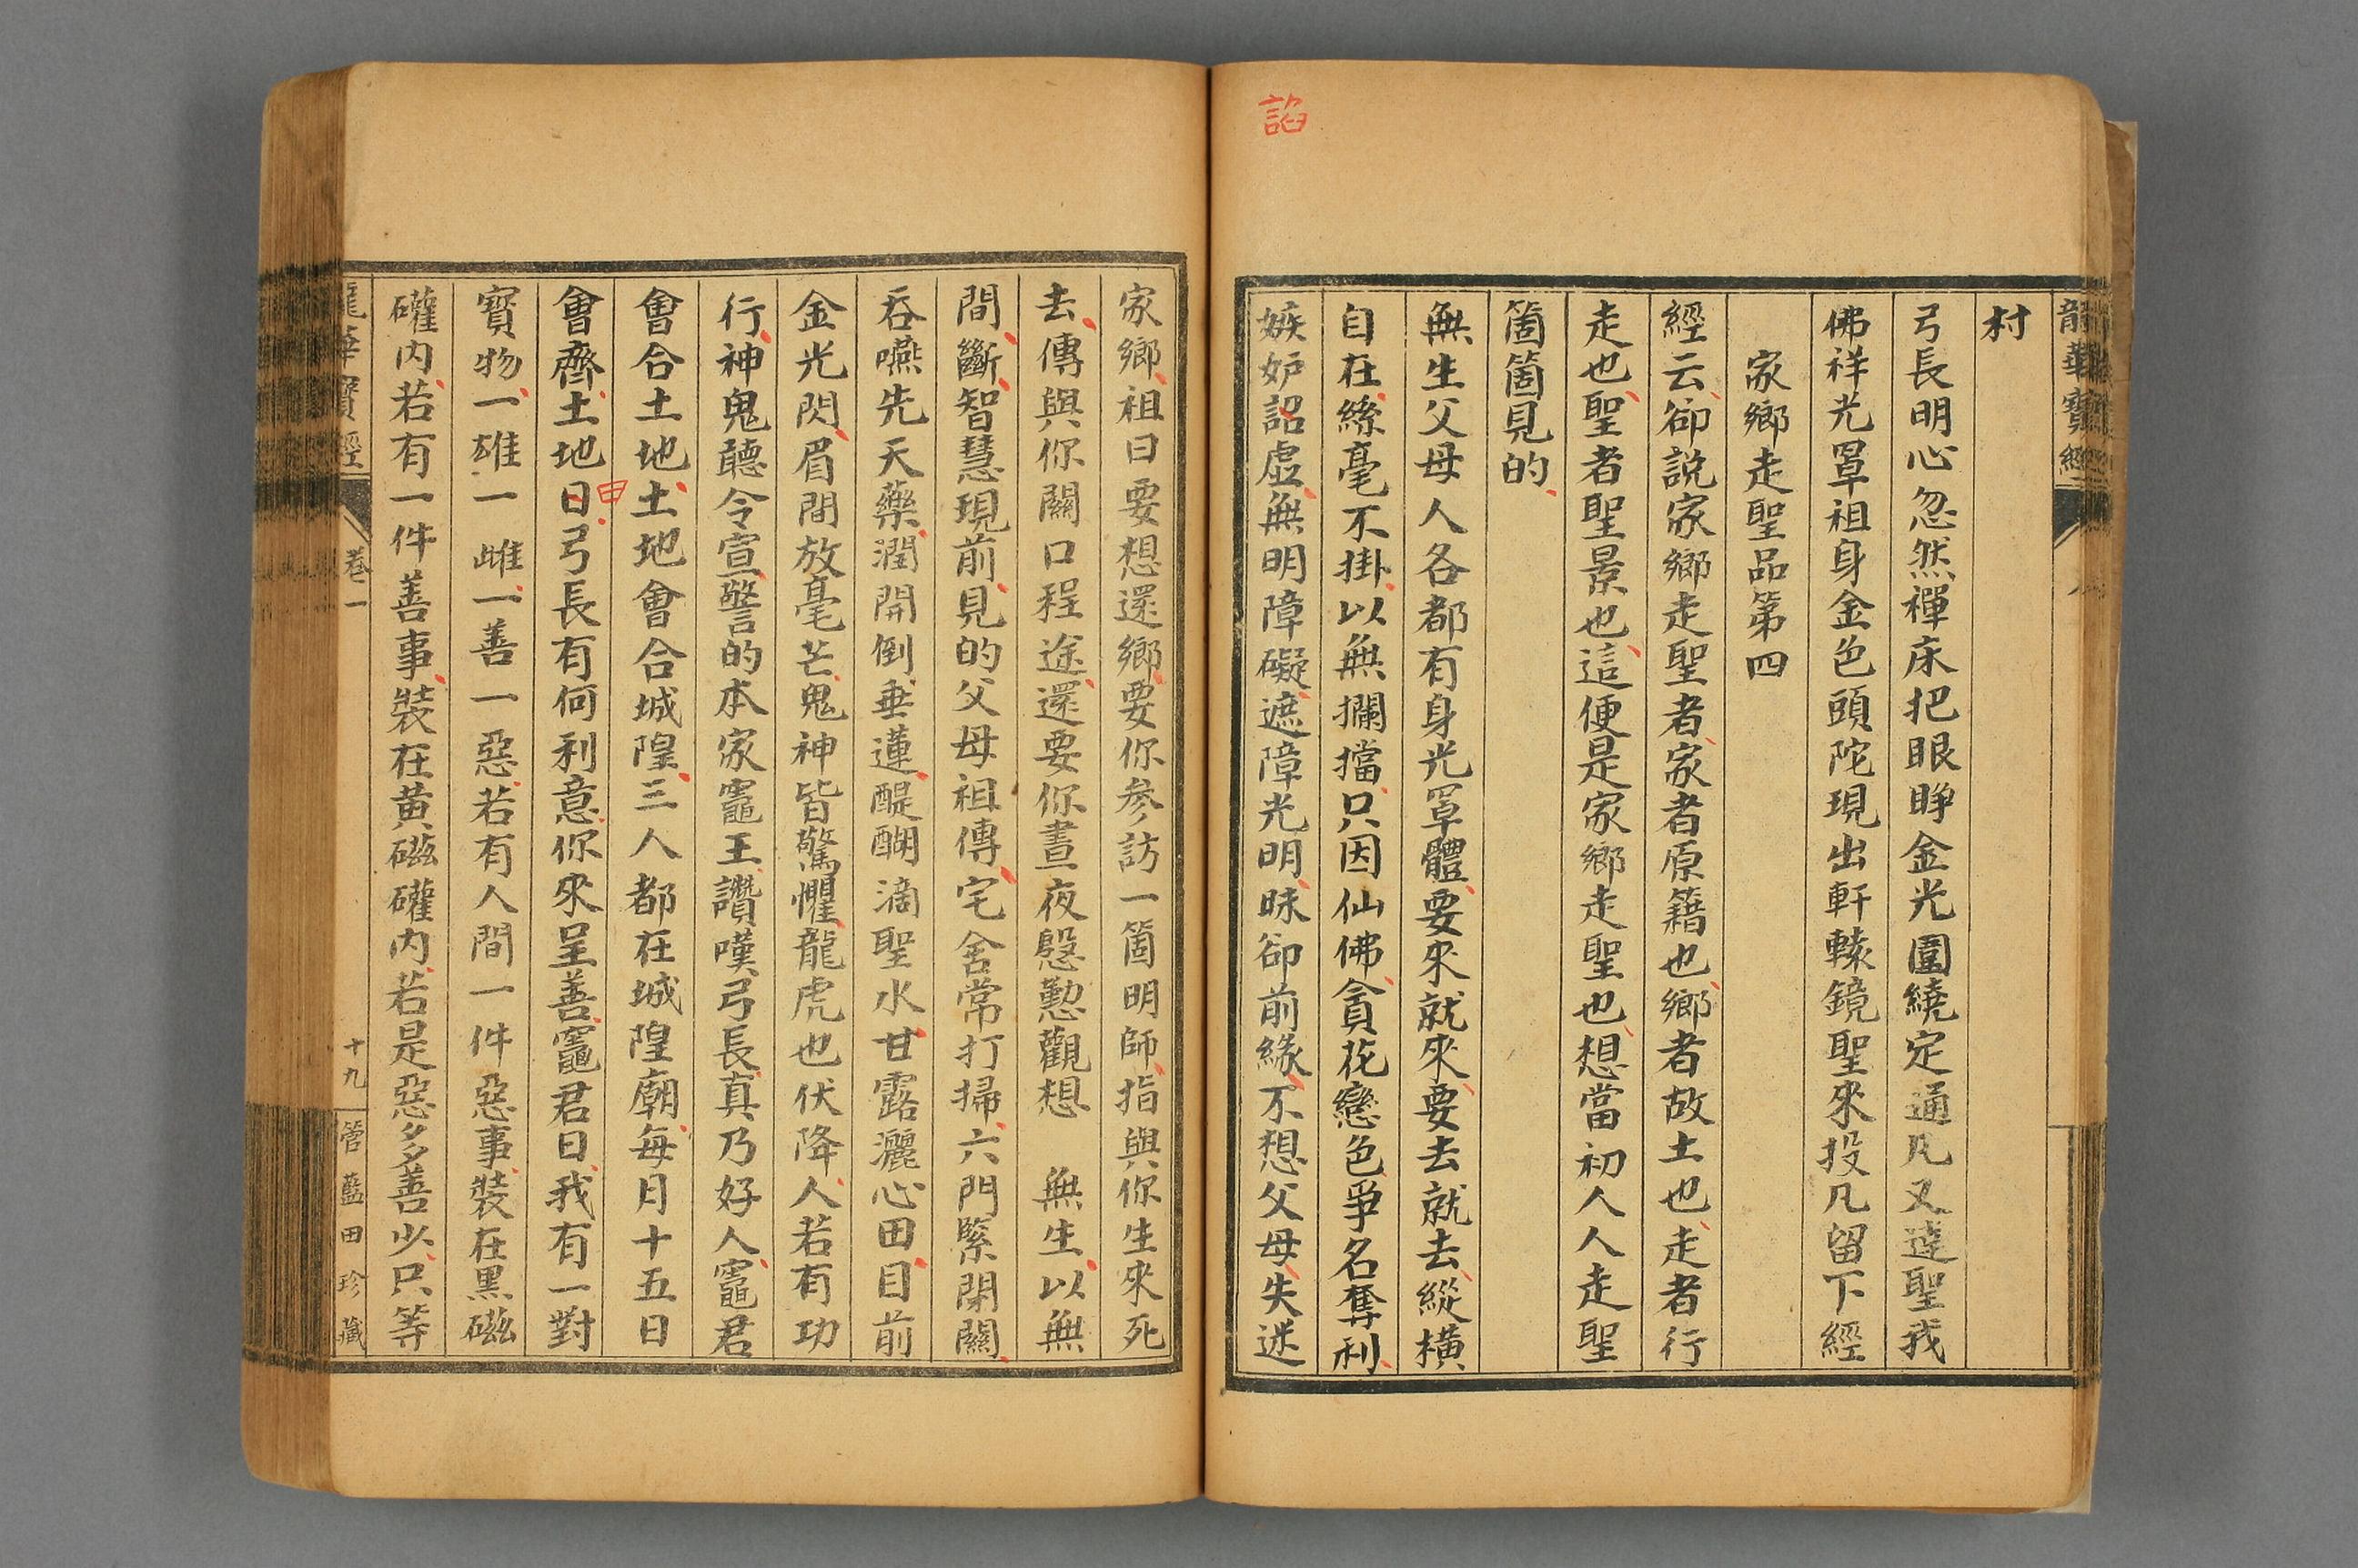 諂
龍華寶經
村
弓長明心忽然禪床把眼睁金光圍繞定通凡又達聖我
佛祥光罩祖身金色頭陀現出軒轅鏡聖來投凡留下經
家鄉走聖品第四
經云卻説家鄉走聖者家者原籍也鄉者故土也走者行
走也聖者聖景也這便是家鄉走聖也想當初人人走聖
箇箇見的
無生父母人各都有身光罩體要來就來要去就去縱橫
自在絲毫不掛以無攔擋只因仙佛貪花戀色爭名奪利
嫉妒詔虛無明障礙遮障光明昧卻前緣不想父母失迷
家鄉祖曰要想還鄉要你參訪一箇明師指與你生來死
去傳與你關口程途還要你晝夜慇懃觀想 無生以無
間斷智慧現前見的父母祖傳宅舍常打掃六門緊閉關
吞嚥先天藥潤開倒垂蓮醍醐滴聖水甘露灑心田目前
金光閃眉間放毫芒鬼神皆驚懼龍虎也伏降人若有功
行神鬼聽令宣警的本家竈王讚嘆弓長真乃好人竈君
會合土地土地會合城隍三人都在城隍廟每月十五日
會齊土地曰弓長有何利意你來呈善竈君曰我有一對
申
寶物一雄一雌一善一惡若有人間一件惡事裝在黑磁
礶內若有一件善事裝在黃磁礶內若是惡多善少只等
龍華寶經
卷一
十九
管藍田珍藏